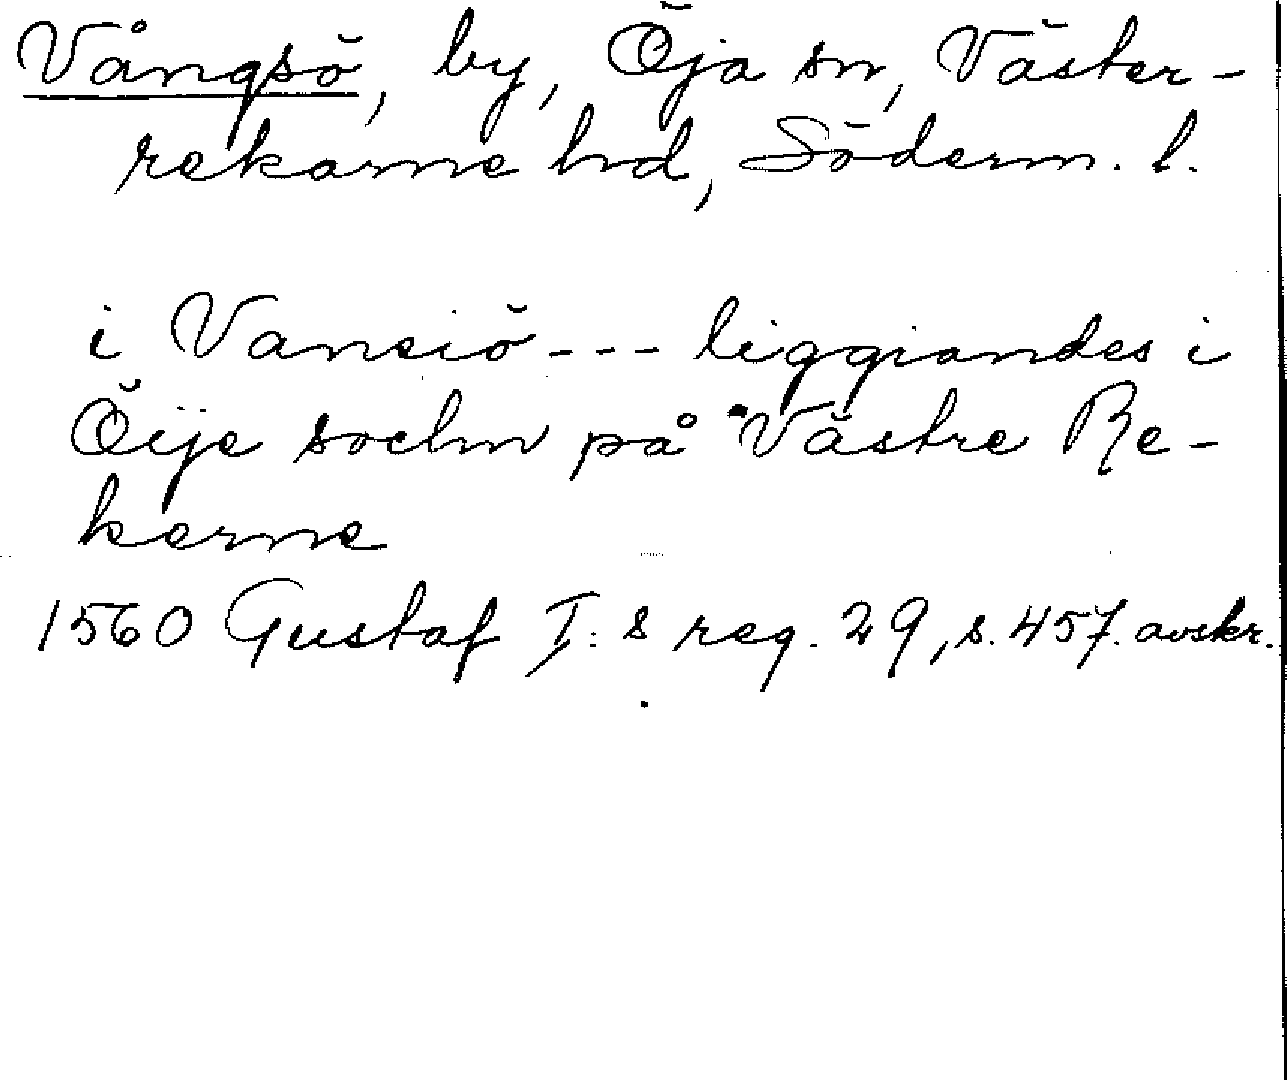 Vångsö, by, Öja sn, Väster-
rekarne hd, Söderm. l.
i Vansiö --- liggiandes i
Öije sochn på Västre Re-
kerne
1560 Gustaf I:s reg. 29, s. 457. avskr.